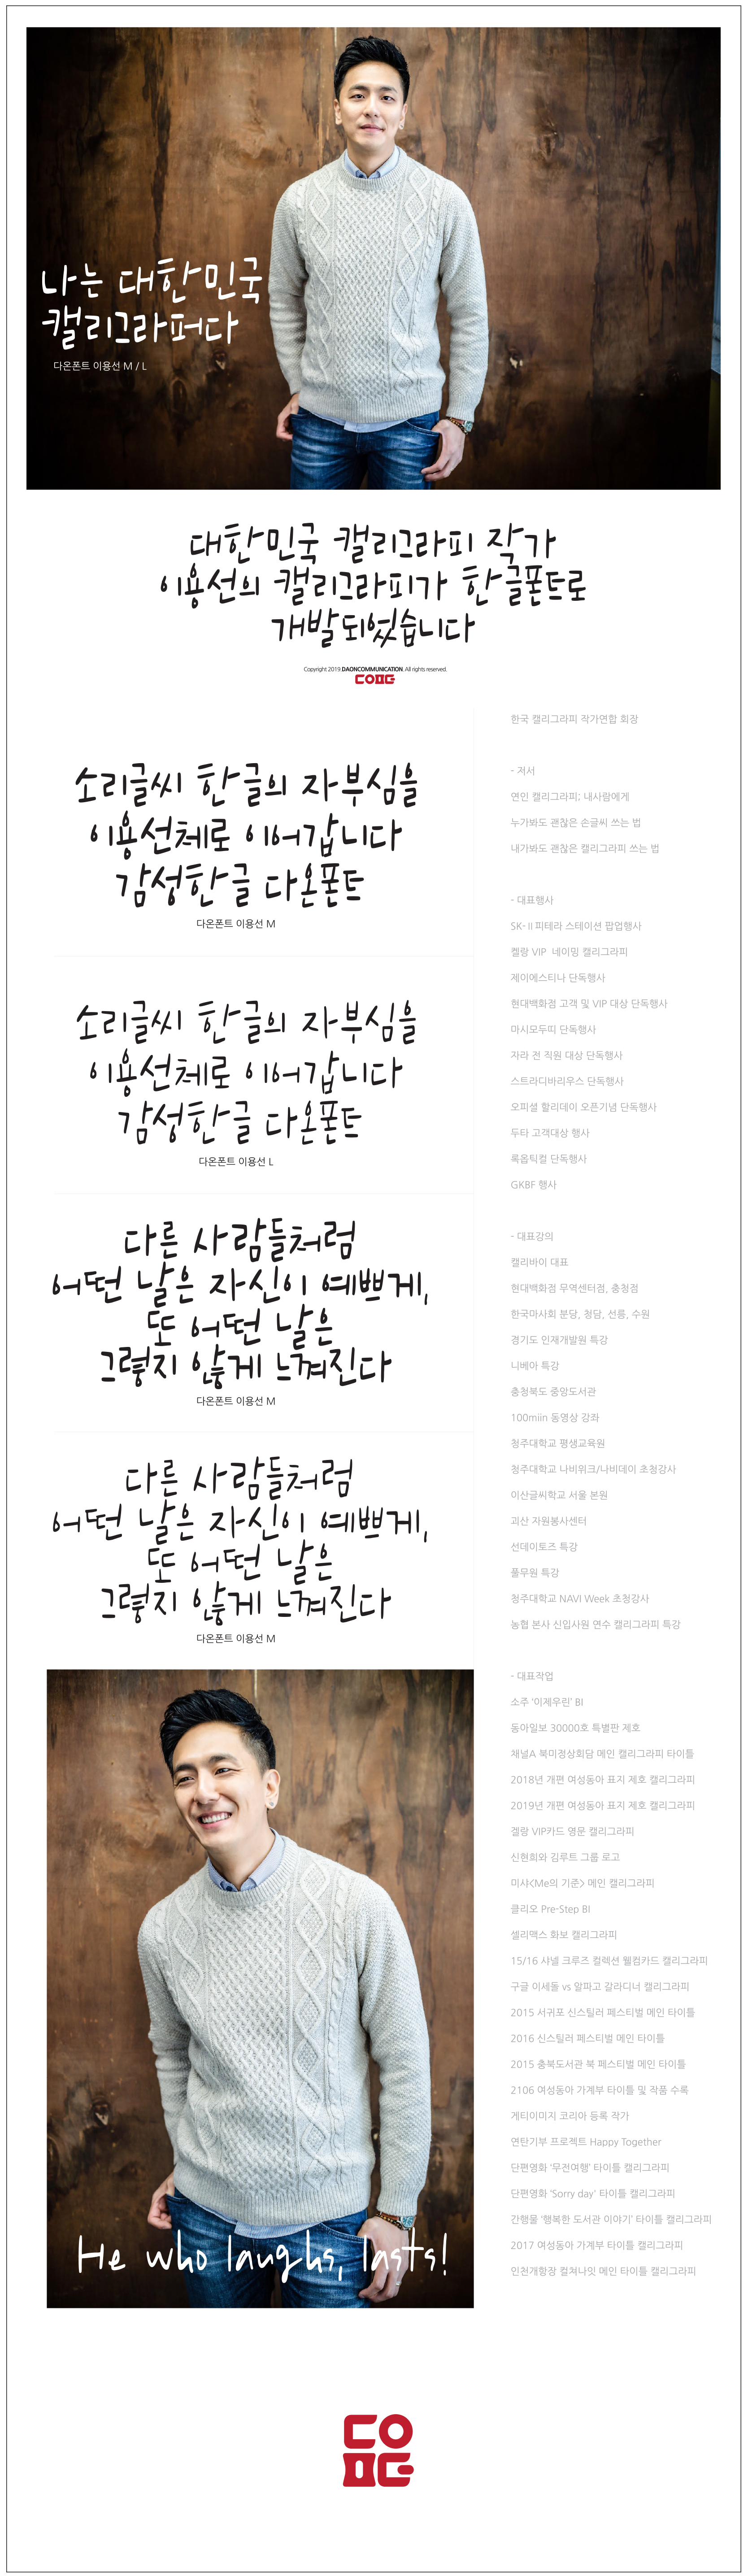 나는 대한민국
캘리그라퍼다
다온폰트 이용선 M / L
대한민국 캘리그라피 작가
이용선의 캘리그라피가 한글폰트로
개발되었습니다
Copyright 2019.DAONCOMMUNICATION. All rights reserved.
소리글씨 한글의 자부심을
이용선체로 이어갑니다
감성한글 다온폰트
다온폰트 이용선 M
소리글씨 한글의 자부심을
이용선체로 이어갑니다
감성한글 다온폰트
다온폰트 이용선 L
다른 사람들처럼
어떤 날은 자신이 예쁘게,
또 어떤 날은
그렇지 않게 느껴진다
다온폰트 이용선 M
다른 사람들처럼
어떤 날은 자신이 예쁘게,
또 어떤 날은
그렇지 않게 느껴진다
다온폰트 이용선 M
He who laughs, lasts!
한국 캘리그라피 작가연합 회장
- 저서
연인 캘리그라피; 내사람에게
누가봐도 괜찮은 손글씨 쓰는 법
내가봐도 괜찮은 캘리그라피 쓰는 법
- 대표행사
SK-Ⅱ피테라 스테이션 팝업행사
켈랑 VIP 네이밍 캘리그라피
제이에스티나 단독행사
현대백화점 고객 및 VIP 대상 단독행사
마시모두띠 단독행사
자라 전 직원 대상 단독행사
스트라디바리우스 단독행사
오피셜 할리데이 오픈기념 단독행사
두타 고객대상 행사
록옵틱컬 단독행사
GKBF 행사
- 대표강의
캘리바이 대표
현대백화점 무역센터점, 충청점
한국마사회 분당, 청담, 선릉, 수원
경기도 인재개발원 특강
니베아 특강
충청북도 중앙도서관
100miin 동영상 강좌
청주대학교 평생교육원
청주대학교 나비위크/나비데이 초청강사
이산글씨학교 서울 본원
괴산 자원봉사센터
선데이토즈 특강
풀무원 특강
청주대학교 NAVI Week 초청강사
농협 본사 신입사원 연수 캘리그라피 특강
- 대표작업
소주 '이제우린' BI
동아일보 30000호 특별판 제호
채널A 북미정상회담 메인 캘리그라피 타이틀
2018년 개편 여성동아 표지 제호 캘리그라피
2019년 개편 여성동아 표지 제호 캘리그라피
겔랑 VIP카드 영문 캘리그라피
신현희와 김루트 그룹 로고
미샤<Me의 기준> 메인 캘리그라피
클리오 Pre-Step BI
셀리맥스 화보 캘리그라피
15/16 샤넬 크루즈 컬렉션 웰컴카드 캘리그라피
구글 이세돌 vs 알파고 갈라디너 캘리그라피
2015 서귀포 신스틸러 페스티벌 메인 타이틀
2016 신스틸러 페스티벌 메인 타이틀
2015 충북도서관 북 페스티벌 메인 타이틀
2106 여성동아 가계부 타이틀 및 작품 수록
게티이미지 코리아 등록 작가
연탄기부 프로젝트 Happy Together
단편영화 '무전여행' 타이틀 캘리그라피
단편영화 'Sorry day' 타이틀 캘리그라피
간행물 '행복한 도서관 이야기' 타이틀 캘리그라피
2017 여성동아 가계부 타이틀 캘리그라피
인천개항장 컬쳐나잇 메인 타이틀 캘리그라피